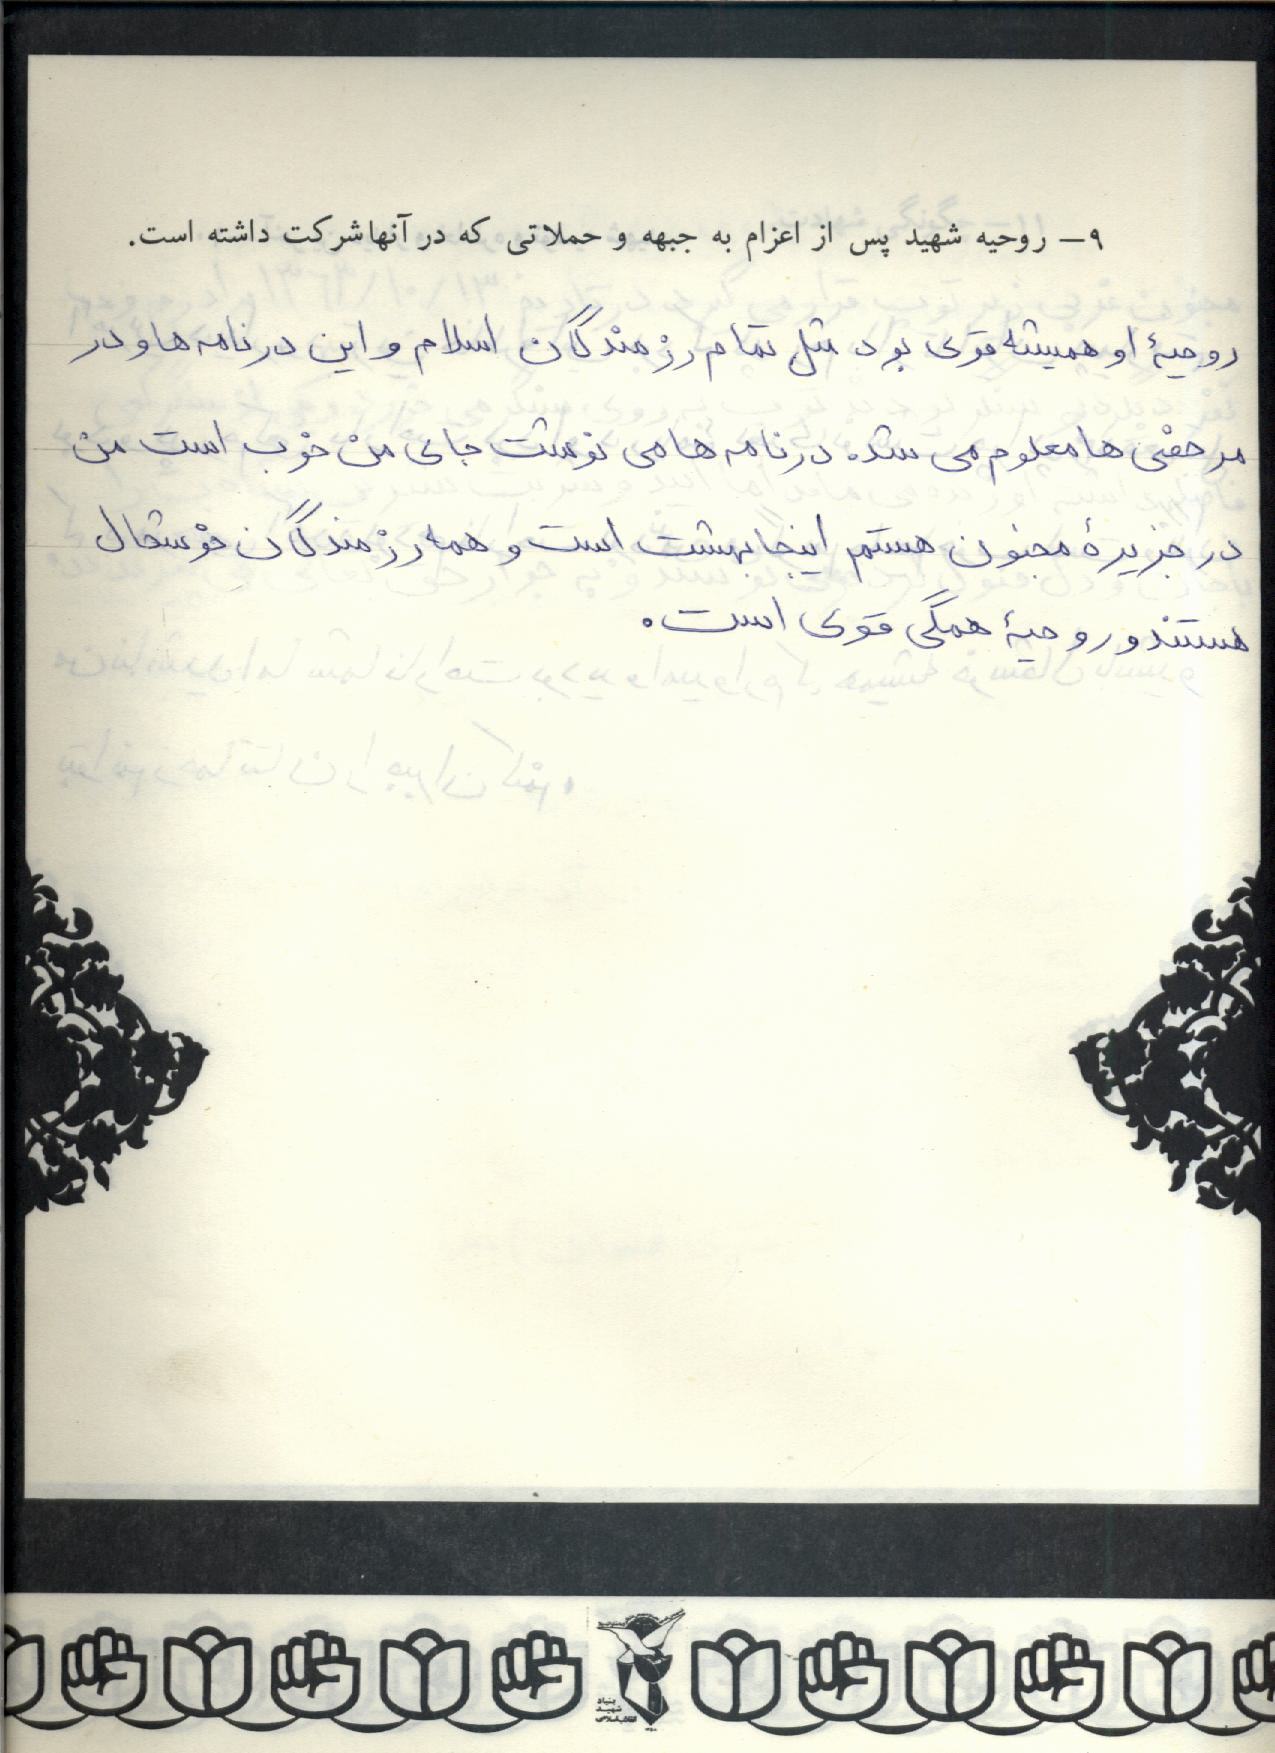 ۹— روحیه شهید پس از اعزام به جبهه و حملاتی که در آنها شرکت داشته است.
روحیهٔ او همیشه قوی بود مثل تمام رزمندگان اسلام و این در نامه ها و در
مرخصی ها معلوم می شد. در نامه ها می نوشت جای من خوب است من
در جزیرهٔ مجنون هستم اینجا بهشت است و همه رزمندگان خوشحال
هستند و روحیهٔ همگی قوی است.
بنیاد
شهید
انقلاب اسلامی